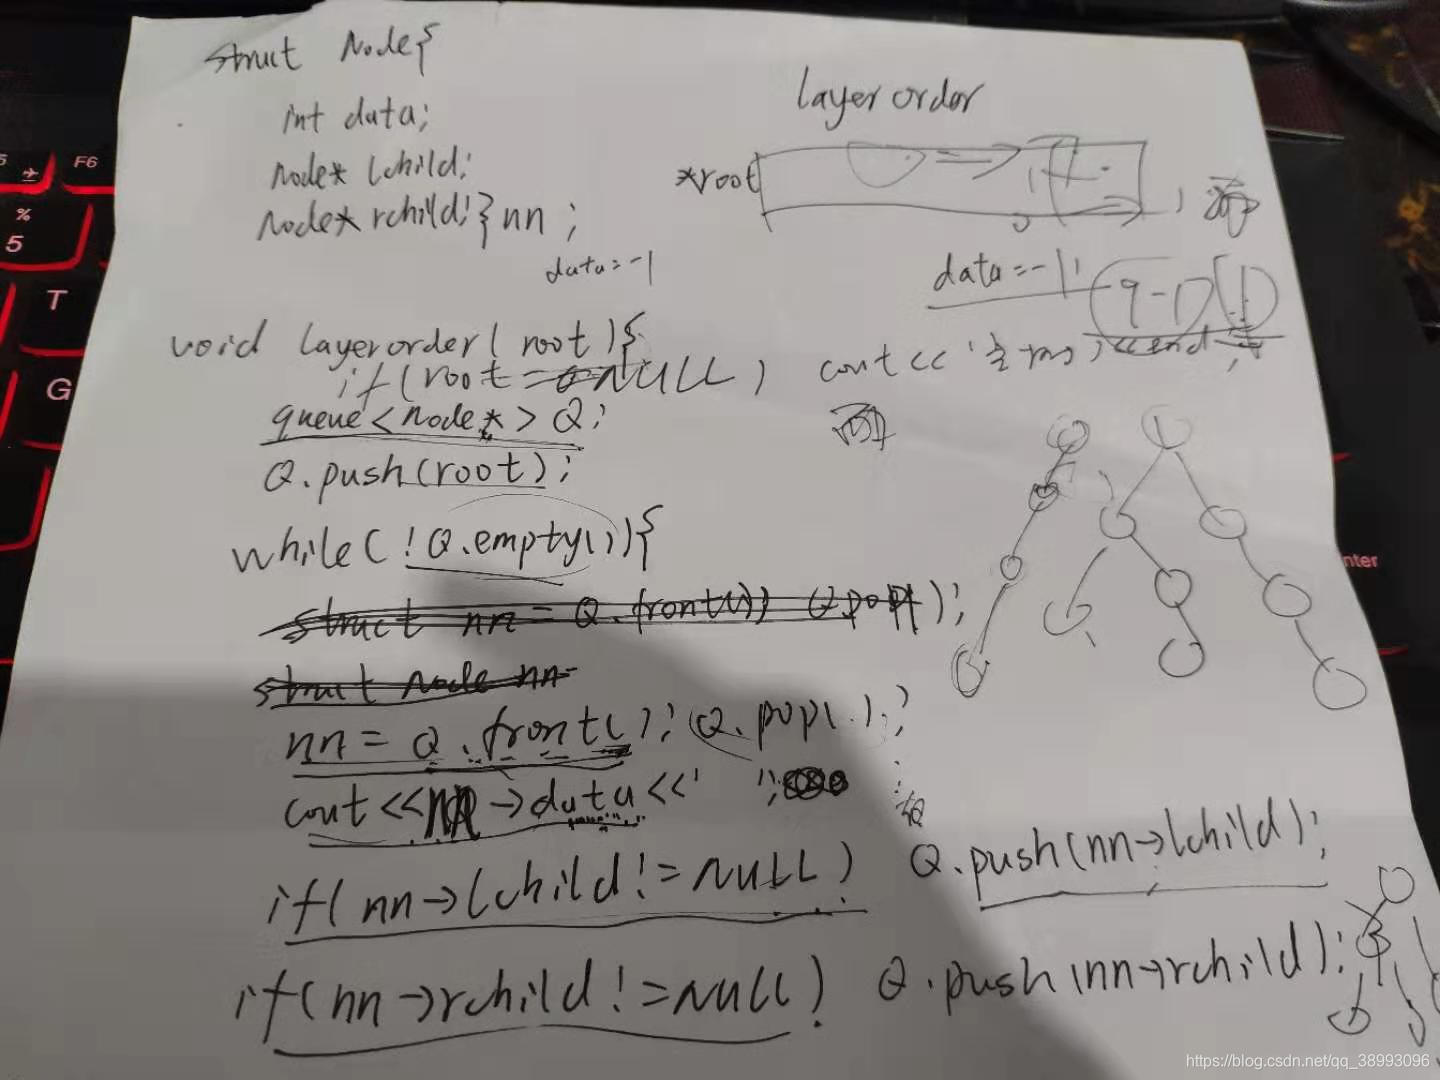 struct Node{
int data;
Node* lchild;
Node* rchild;}nn;
data=-1
layer order
*root
data=-1
void layerorder(root){
if(root==NULL) cout<<
queue<node*>Q;
Q.push(root);
while(!Q.empty()){
struct nn=Q.front()) Q.pop();
struct node nn
nn=Q.front(); Q.pop();
cout<<nn->data<<' ';
if(nn->lchild!=NULL) Q.push(nn->lchild);
if(nn->rchild!=NULL) Q.push(nn->rchild);
F6
%
5
T
G
nter
https://blog.csdn.net/qq_38993096